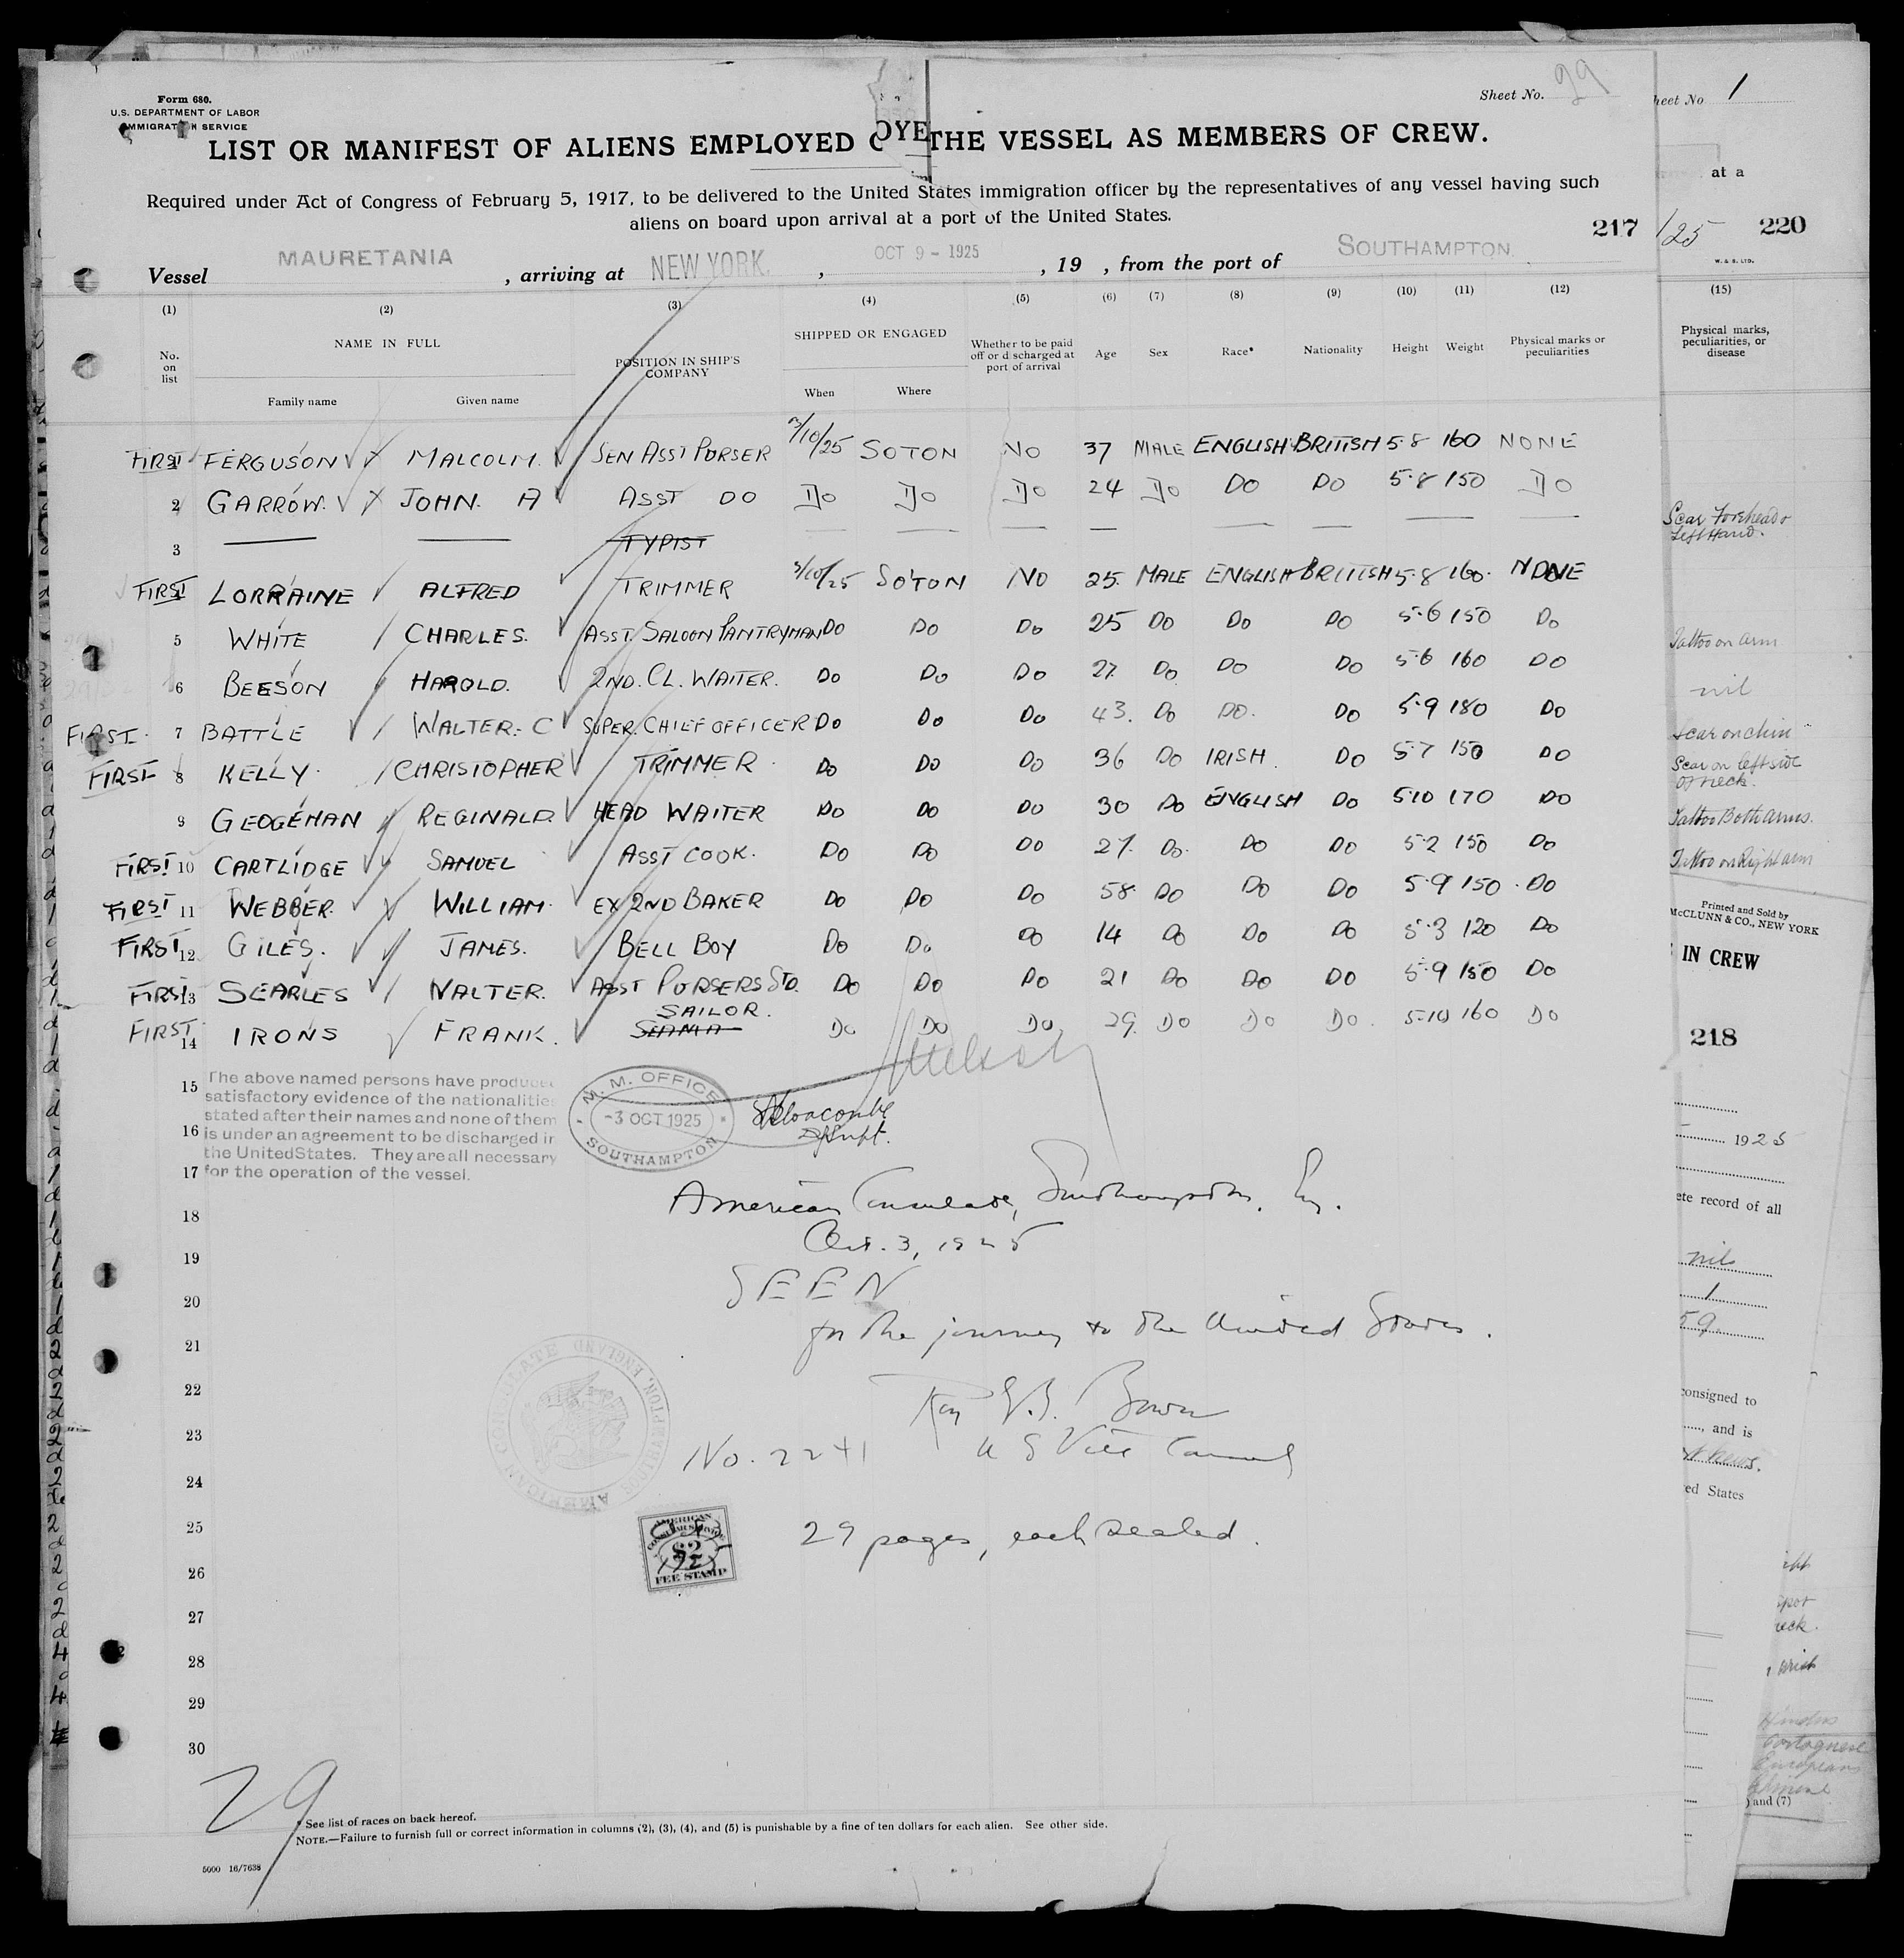 Form 680.
U.S. DEPARTMENT OF LABOR
IMMIGRATION SERVICE
Sheet No. 29
LIST OR MANIFEST OF ALIENS EMPLOYED O THE VESSEL AS MEMBERS OF CREW.
Required under Act of Congress of February 5, 1917, to be delivered to the United States immigration officer by the representatives of any vessel having such
aliens on board upon arrival at a port of the United States.
217
Vessel MAURETANIA, arriving at NEW YORK., OCT 9 - 1925, 19 , from the port of SOUTHAMPTON.
(1) (2) (3) (4) (5) (6) (7) (8) (9) (10) (11) (12)
No. on list NAME IN FULL POSITION IN SHIP'S COMPANY SHIPPED OR ENGAGED Whether to be paid off or discharged at port of arrival Age Sex Race* Nationality Height Weight Physical marks or peculiarities
Family name Given name When Where
FIRST FERGUSON MALCOLM. SEN ASST PURSER 3/10/25 SOTON NO 37 MALE ENGLISH BRITISH 5·8 160 NONE
2 GARROW. JOHN. A ASST DO DO DO DO 24 DO DO DO 5·8 150 DO
3 — — TYPIST — — — — — — — —
FIRST LORRAINE ALFRED TRIMMER 3/10/25 SO'TON NO 25. MALE ENGLISH BRITISH 5·8 160. NONE
5 WHITE CHARLES. ASST. SALOON PANTRYMAN DO DO DO 25 DO DO DO 5·6 150 DO
6 BEESON HAROLD. 2ND. CL. WAITER. DO DO DO 27. DO DO DO 5·6 160 DO
FIRST. 7 BATTLE WALTER. C SUPER. CHIEF OFFICER DO DO DO 43. DO DO. DO 5·9 180 DO
FIRST 8 KELLY. CHRISTOPHER TRIMMER. DO DO DO 36 DO IRISH. DO 5·7 150 DO
9 GEOGEHAN REGINALD. HEAD WAITER DO DO DO 30 DO ENGLISH DO 5·10 170 DO
FIRST 10 CARTLIDGE SAMUEL ASST COOK. DO DO DO 27. DO. DO DO 5·2 150 DO
FIRST 11 WEBBER. WILLIAM. EX 2ND BAKER DO DO DO 58 DO DO DO 5·9 150 DO
FIRST 12 GILES. JAMES. BELL BOY DO DO DO 14 DO DO DO 5·3 120 DO
FIRST 13 SEARLES WALTER. ASST PURSERS STD. DO DO DO 21 DO DO DO 5·9 150 DO
SAILOR.
FIRST 14 IRONS FRANK. SEAMA DO DO DO 29. DO DO DO. 5·10 160 DO
15
The above named persons have produced
satisfactory evidence of the nationalities
stated after their names and none of them
16
is under an agreement to be discharged in
the United States. They are all necessary
17
for the operation of the vessel.
M. M. OFFICE
-3 OCT 1925
SOUTHAMPTON
American Consulate, Southampton, Eng.
18
Oct. 3, 1925
19
SEEN
20
for the journey to the United States.
21
22
Roy E.B. Bower
23
No. 2241 U S Vice Consul
AMERICAN CONSULATE SOUTHAMPTON, ENGLAND
24
25
29 pages, each sealed.
AMERICAN
CONSULAR SERVICE
$2
FEE STAMP
26
27
28
29
30
29
* See list of races on back hereof.
NOTE.—Failure to furnish full or correct information in columns (2), (3), (4), and (5) is punishable by a fine of ten dollars for each alien. See other side.
5000 16/7638
heet No 1
at a
/25 220
W. & S. LTD.
(15)
Physical marks,
peculiarities, or
disease
Scar Forehead &
Left Hand.
Tattoo on arm
nil
Scar on chin
Scar on left side
of neck.
Tattoo Both arms.
Tattoo on Right arm
Printed and Sold by
McCLUNN & CO., NEW YORK
IN CREW
218
1925
ete record of all
nil
1
59.
consigned to
, and is
ed States
eck.
Hindus
Portuguese
European
) and (7)